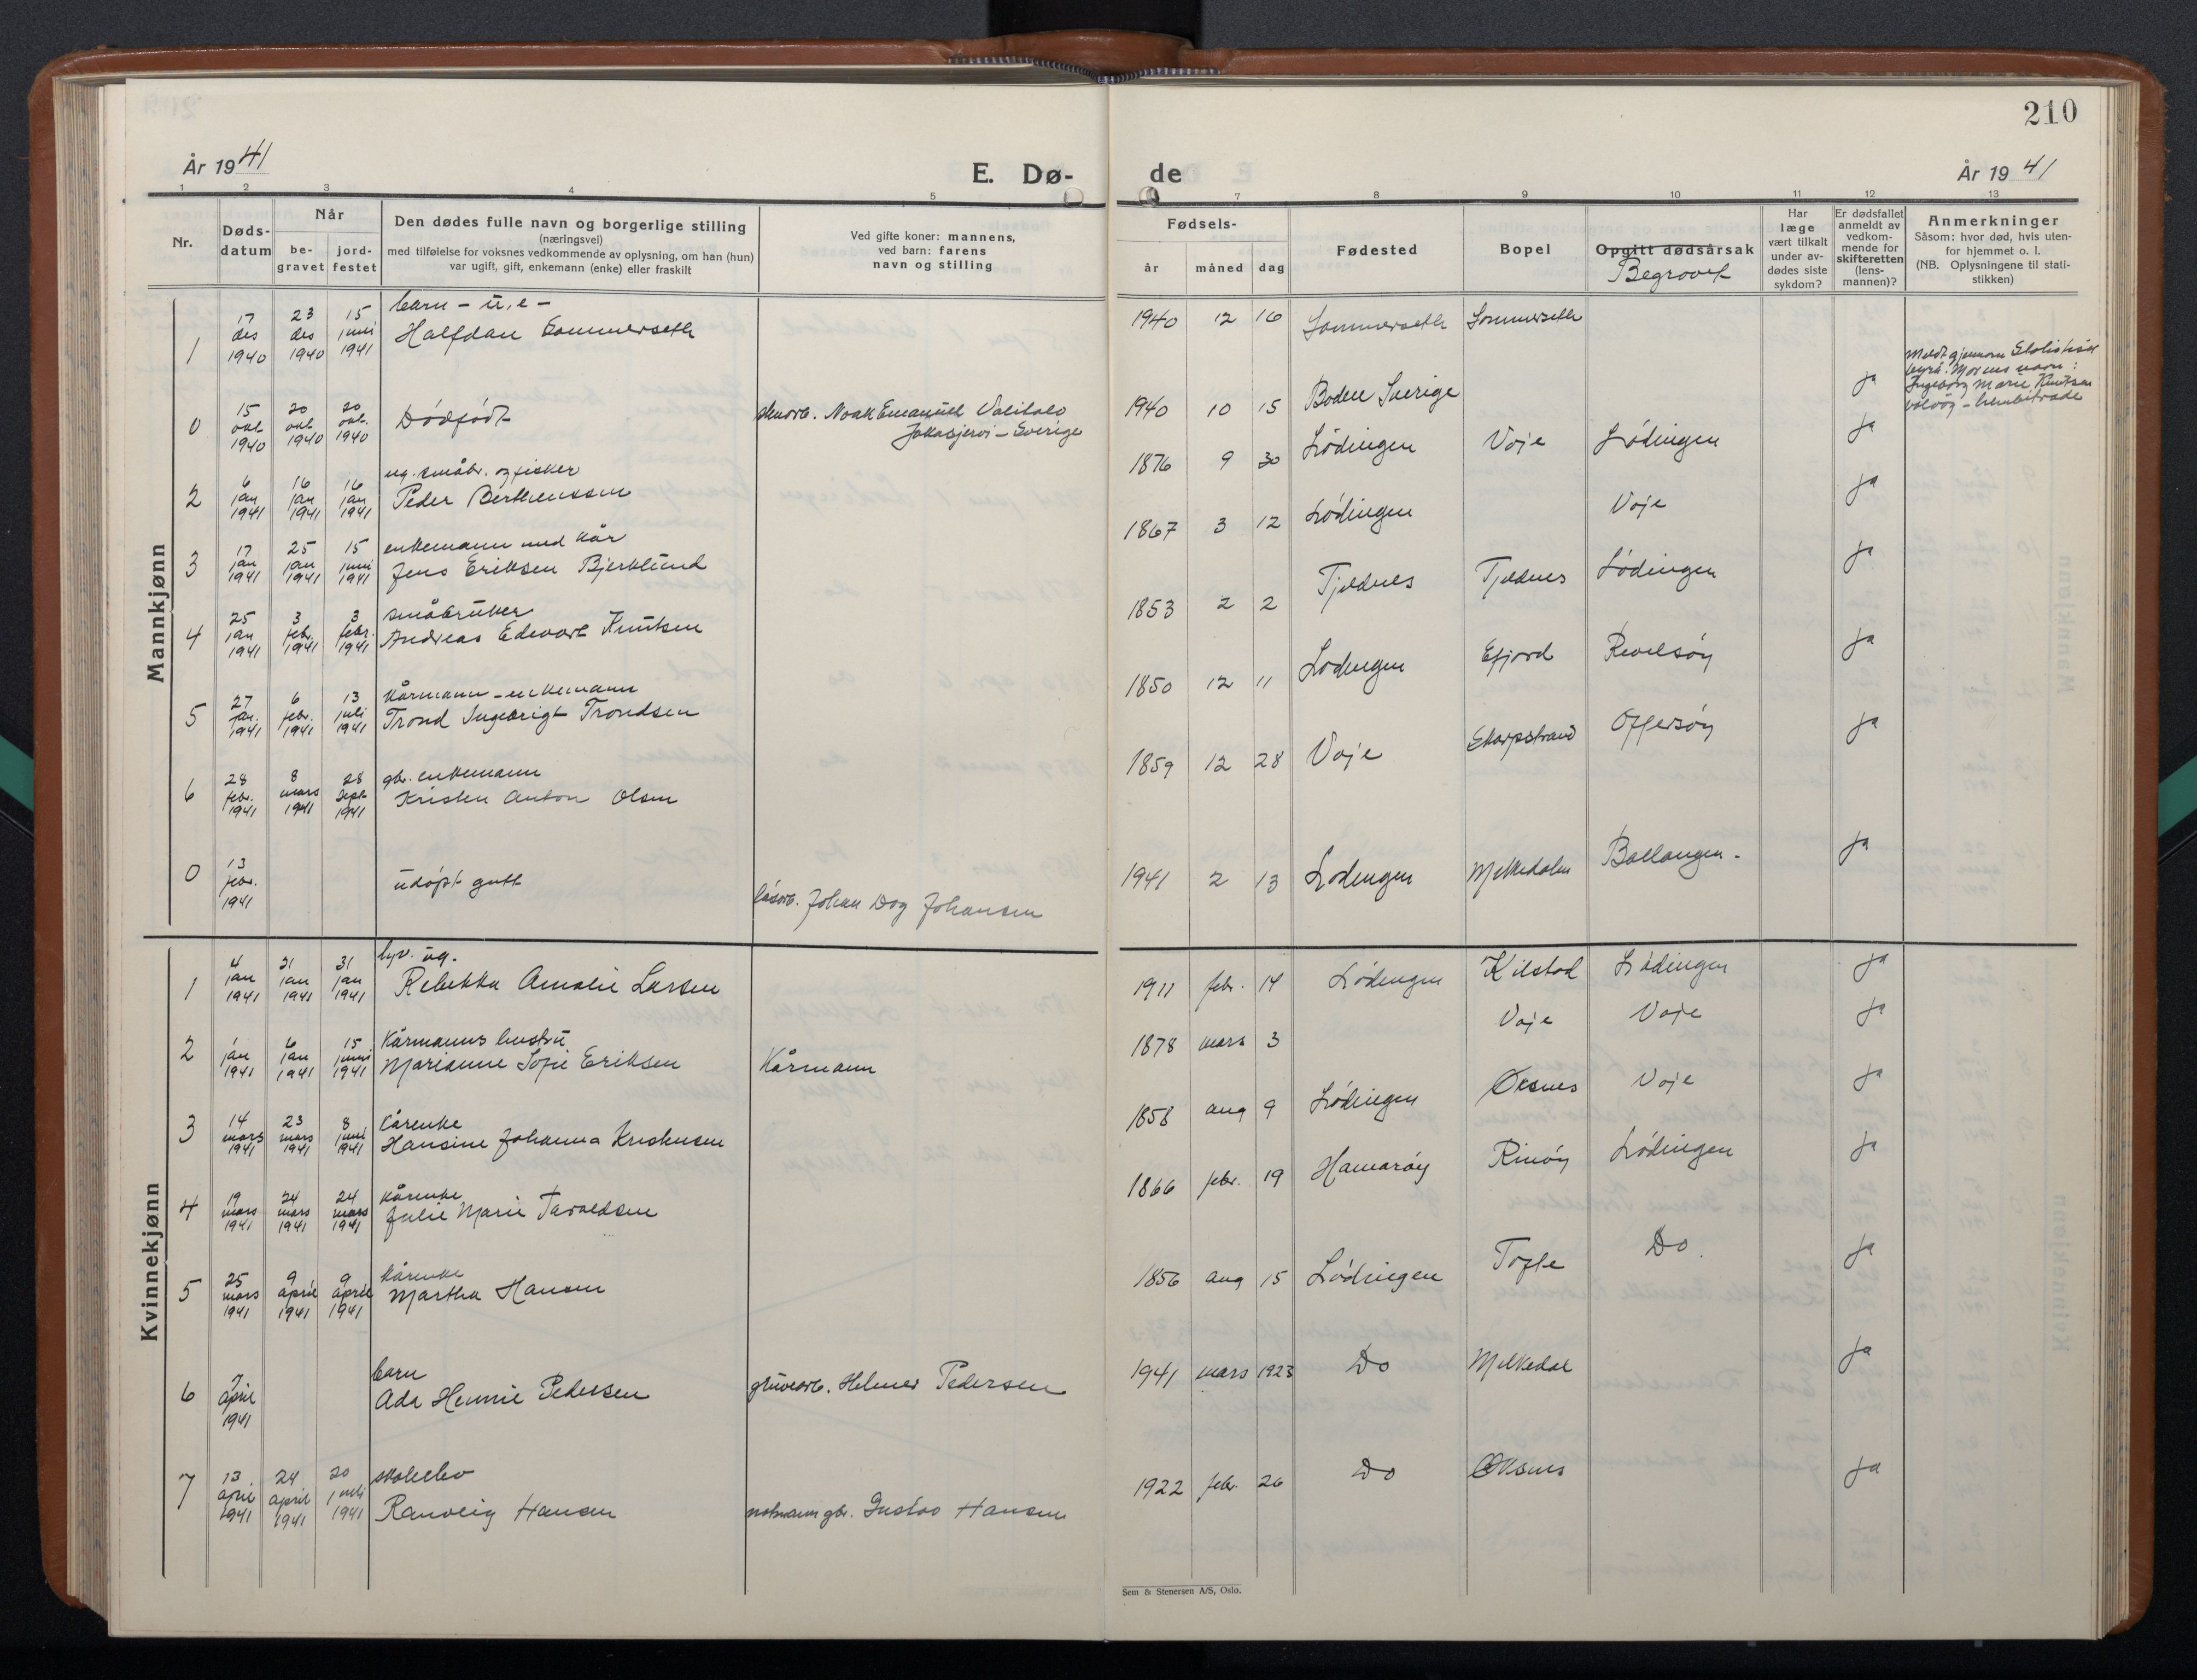 210
År 1941
E. Dø-
de
År 1941
1 2 3 4 5 7 8 9 10 11 12 13
Nr.
Døds-
datum
Når
be-
gravet
jord-
festet
Den dødes fulle navn og borgerlige stilling
(næringsvei)
med tilføielse for voksnes vedkommende av oplysning, om han (hun)
var ugift, gift, enkemann (enke) eller fraskilt
Ved gifte koner: mannens,
ved barn: farens
navn og stilling
Fødsels-
år måned dag
Fødested
Bopel
Opgitt dødsårsak
Begravet
Har
læge
vært tilkalt
under av-
dødes siste
sykdom?
Er dødsfallet
anmeldt av
vedkom-
mende for
skifteretten
(lens-
mannen)?
Anmerkninger
Såsom: hvor død, hvis uten-
for hjemmet o. l.
(NB. Oplysningene til stati-
stikken)
Mannkjønn
barn - u.e -
1 17 des 1940 23 des 1940 15 juni 1941 Halfdan Sommerseth 1940 12 16 Sommerseth Sommerseth
0 15 okt 1940 20 okt 1940 20 okt. 1940 Dødfødt skuorb. Noak Emanuel
Sverige 1940 10 15 Boden Sverige ja
Meldt gjennom Statistisk
byrå. Morens navn:
Ingeborg Marie Knutsen
ug. småbr. og fisker
2 6 jan 1941 16 jan 1941 16 jan 1941 Peder Berthenssen 1876 9 30 Lødingen Voje Lødingen ja
enkemann med kår
3 17 jan 1941 25 jan 1941 15 juni 1941 Jens Eriksen Bjerklund 1867 3 12 Lødingen Voje ja
småbruker
4 25 jan 1941 3 febr. 1941 3 febr. 1941 Andreas Edevart Knutsen 1853 2 2 Tjeldnes Tjeldnes Lødingen ja
kårmann - enkemann
5 27 jan. 1941 6 febr. 1941 13 juli 1941 Trond Ingebrigt Trondsen 1850 12 11 Lødingen Efjord Revelsøy ja
gbr. enkemann
6 28 febr. 1941 8 mars 1941 28 sept 1941 Kristen Anton Olsen 1859 12 28 Voje Skarpstrand Offersøy ja
0 13 febr. 1941 udøpt gutt Johan Dag Johansen 1941 2 13 Lødingen Melkedalen Ballangen - ja
Kvinnekjønn
ug.
1 4 jan 1941 21 jan 1941 31 jan 1941 Rebekka Amalie Larsen 1911 febr. 14 Lødingen Kilstad Lødingen ja
Kårmanns hustru
2 1 jan 1941 6 jan 1941 15 juni 1941 Marianne Sofie Eriksen Kårmann 1878 mars 3 Voje Voje ja
Kårenke
3 14 mars 1941 23 mars 1941 8 juni 1941 Hansine Johanna Kristensen 1858 aug 9 Lødingen Øksnes Voje ja
kårenke
4 19 mars 1941 24 mars 1941 24 mars 1941 Julie Marie Taraldsen 1866 febr. 19 Hamarøy Rinøy Lødingen ja
kårenke
5 25 mars 1941 9 april 1941 9 april 1941 Martha Hansen 1856 aug 15 Lødingen Tofte Do. ja
barn
6 7 april 1941 Ada Hennie Pedersen gruvearb. Helmer Pedersen 1941 mars 1923 Do Melkedal ja
skoleelev
7 13 april 1941 24 april 1941 20 juli 1941 Ranveig Hansen notmann gbr. Gustav Hansen 1922 febr. 26 Do Øksnes ja
Sem & Stenersen A/S, Oslo.